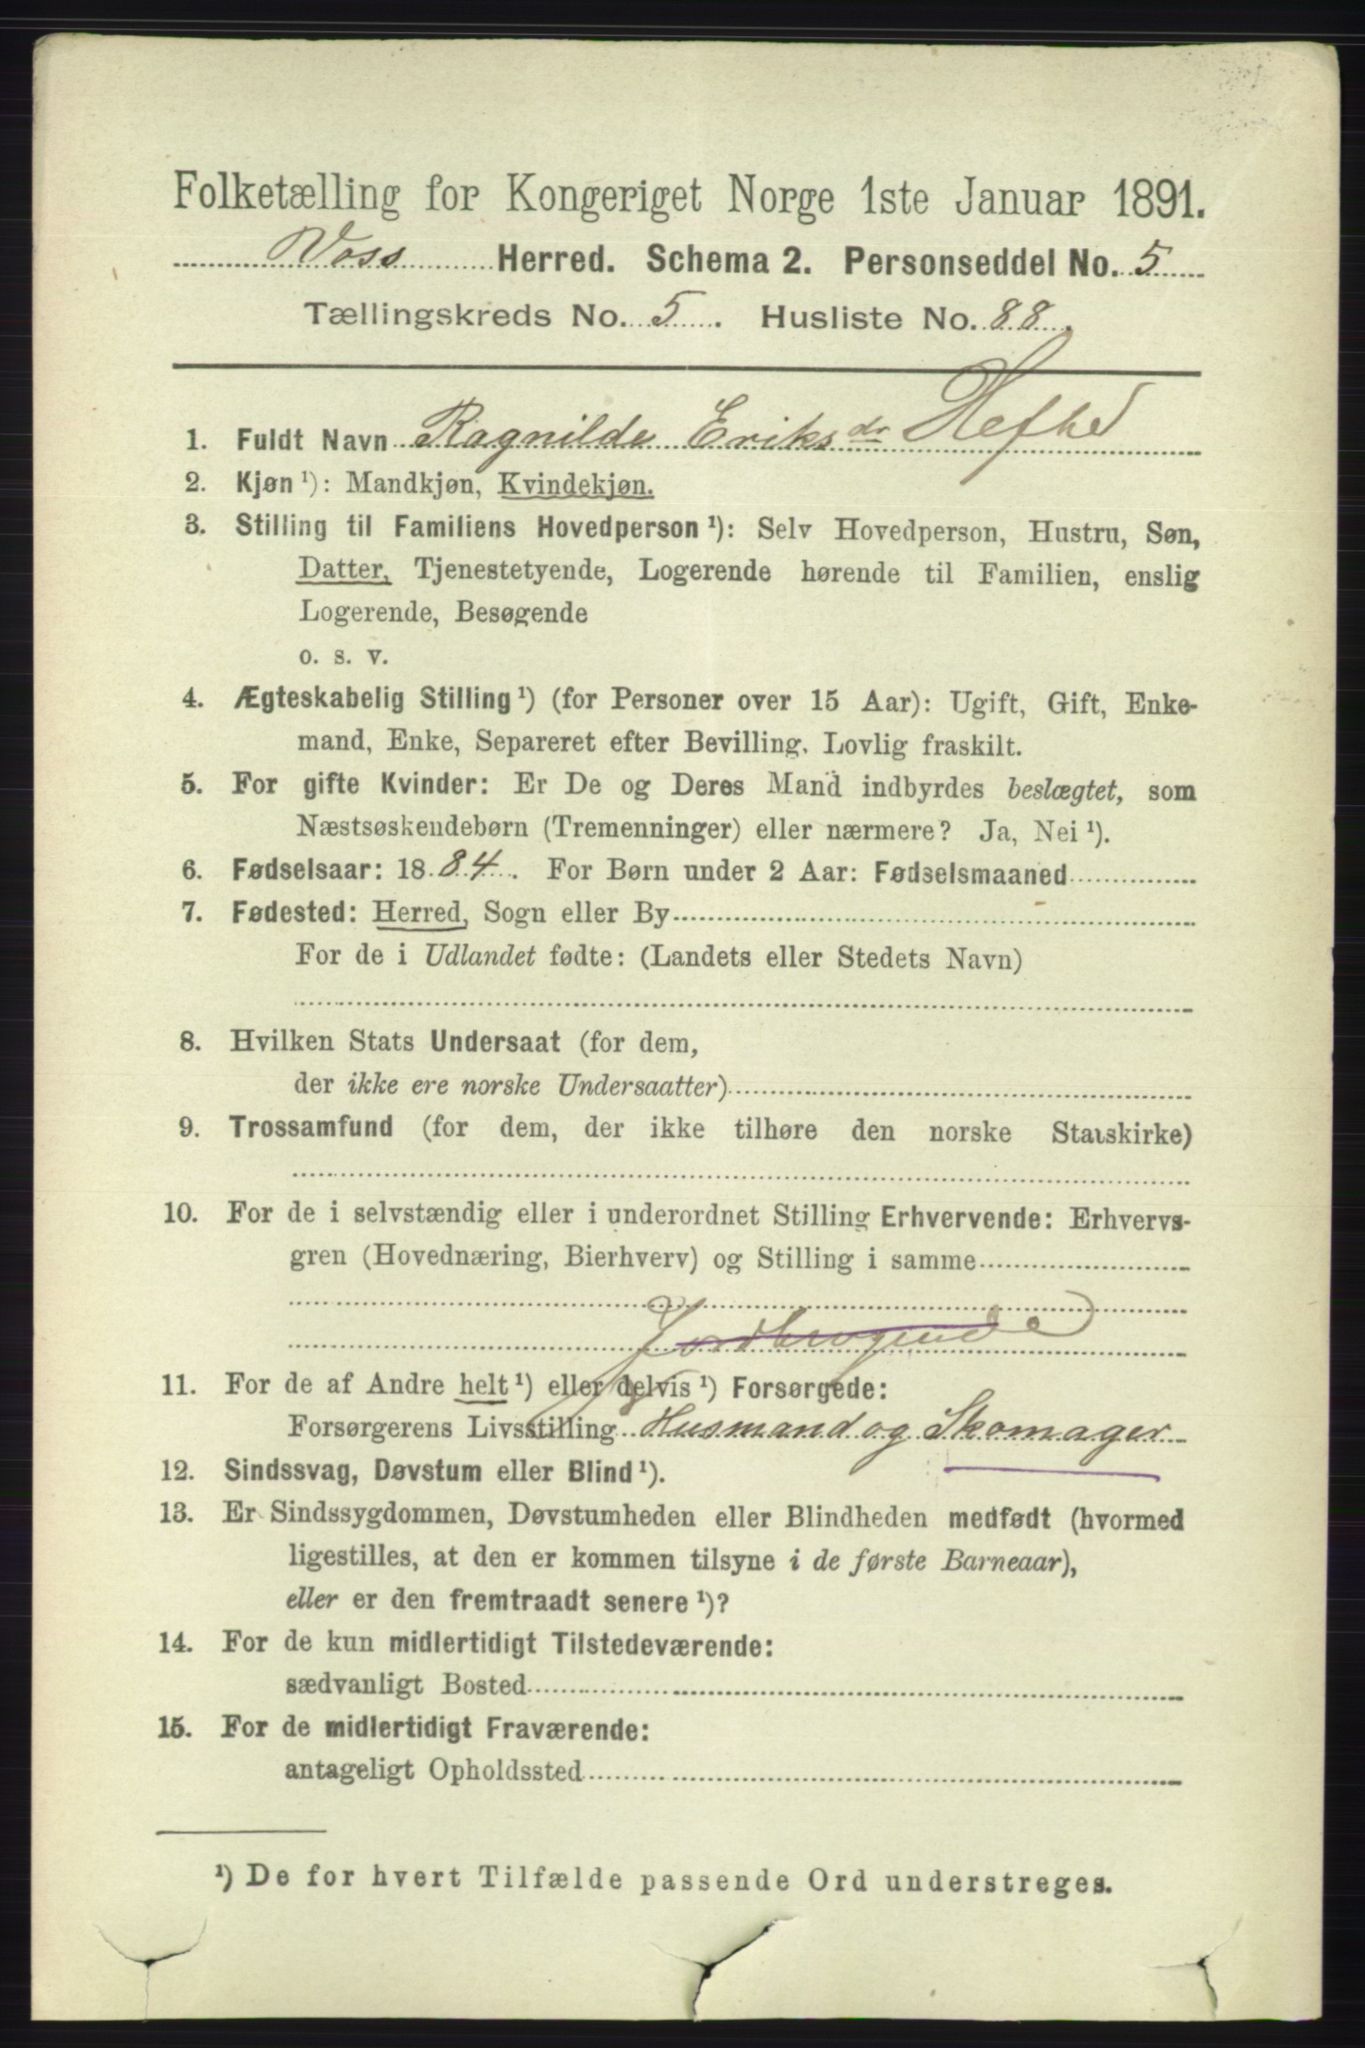 Folketælling for Kongeriget Norge 1ste Januar 1891.
Voss Herred. Schema 2. Personseddel No. 5
Tællingskreds No. 5. Husliste No. 88.
1. Fuldt Navn Ragnilde Eriksdr Hefke
2. Kjøn ¹): Mandkjøn, Kvindekjøn.
3. Stilling til Familiens Hovedperson ¹): Selv Hovedperson, Hustru, Søn,
Datter, Tjenestetyende, Logerende hørende til Familien, enslig
Logerende, Besøgende
o. s. v.
4. Ægteskabelig Stilling ¹) (for Personer over 15 Aar): Ugift, Gift, Enke-
mand, Enke, Separeret efter Bevilling. Lovlig fraskilt.
5. For gifte Kvinder: Er De og Deres Mand indbyrdes beslægtet, som
Næstsøskendebørn (Tremenninger) eller nærmere? Ja, Nei ¹).
6. Fødselsaar: 1884. For Børn under 2 Aar: Fødselsmaaned
7. Fødested: Herred, Sogn eller By
For de i Udlandet fødte: (Landets eller Stedets Navn)
8. Hvilken Stats Undersaat (for dem,
der ikke ere norske Undersaatter)
9. Trossamfund (for dem, der ikke tilhøre den norske Statskirke)
10. For de i selvstændig eller i underordnet Stilling Erhvervende: Erhvervs-
gren (Hovednæring, Bierhverv) og Stilling i samme
Jordbrugende
11. For de af Andre helt ¹) eller delvis ¹) Forsørgede:
Forsørgerens Livsstilling Husmand og Skomager
12. Sindssvag, Døvstum eller Blind ¹).
13. Er Sindssygdommen, Døvstumheden eller Blindheden medfødt (hvormed
ligestilles, at den er kommen tilsyne i de første Barneaar),
eller er den fremtraadt senere ¹)?
14. For de kun midlertidigt Tilstedeværende:
sædvanligt Bosted
15. For de midlertidigt Fraværende:
antageligt Opholdssted
¹) De for hvert Tilfælde passende Ord understreges.